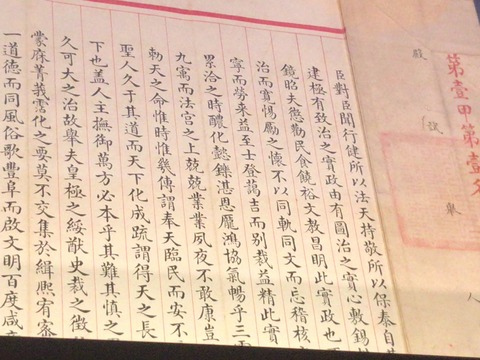 第壹甲第壹名
殿
舉
人
臣對臣聞行健所以法天持敬所以保泰自
建極有致治之實政由有圖治之實心敷錫
鏡昭夫懲勸民食饒裕文教昌明此實政也
治而實惕勵之懷不以同軌同文而忘稽核
寧而勞來益至士登藹吉而別裁益精此實
累洽之時醲化懿鑠湛恩厖鴻協氣暢乎三
九寓而法宮之上兢兢業業夙夜不敢康豈
勅天之命惟時惟幾傳謂奉天臨民而安不
聖人久于其道而天下化成疏謂得天之長
下也盖人主撫御萬方必本乎其難其慎之
久可大之治故舉夫皇極之綏猷史裁之徵
蒙庥菁莪霑化之要莫不交集於緝熙宥密
一道德而同風俗歌豐阜而啟文明百度咸